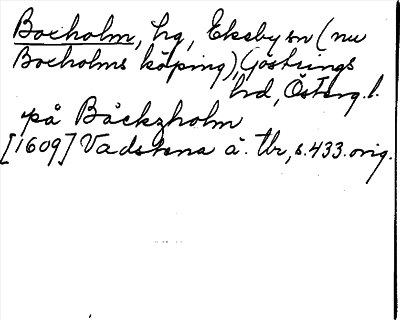 Boxholm, hg, Ekeby sn (nu
Boxholms köping), Göstrings
hd, Österg.l.
på Båckzholm
[1609] Vadstena ä. tbr, s. 433. orig.